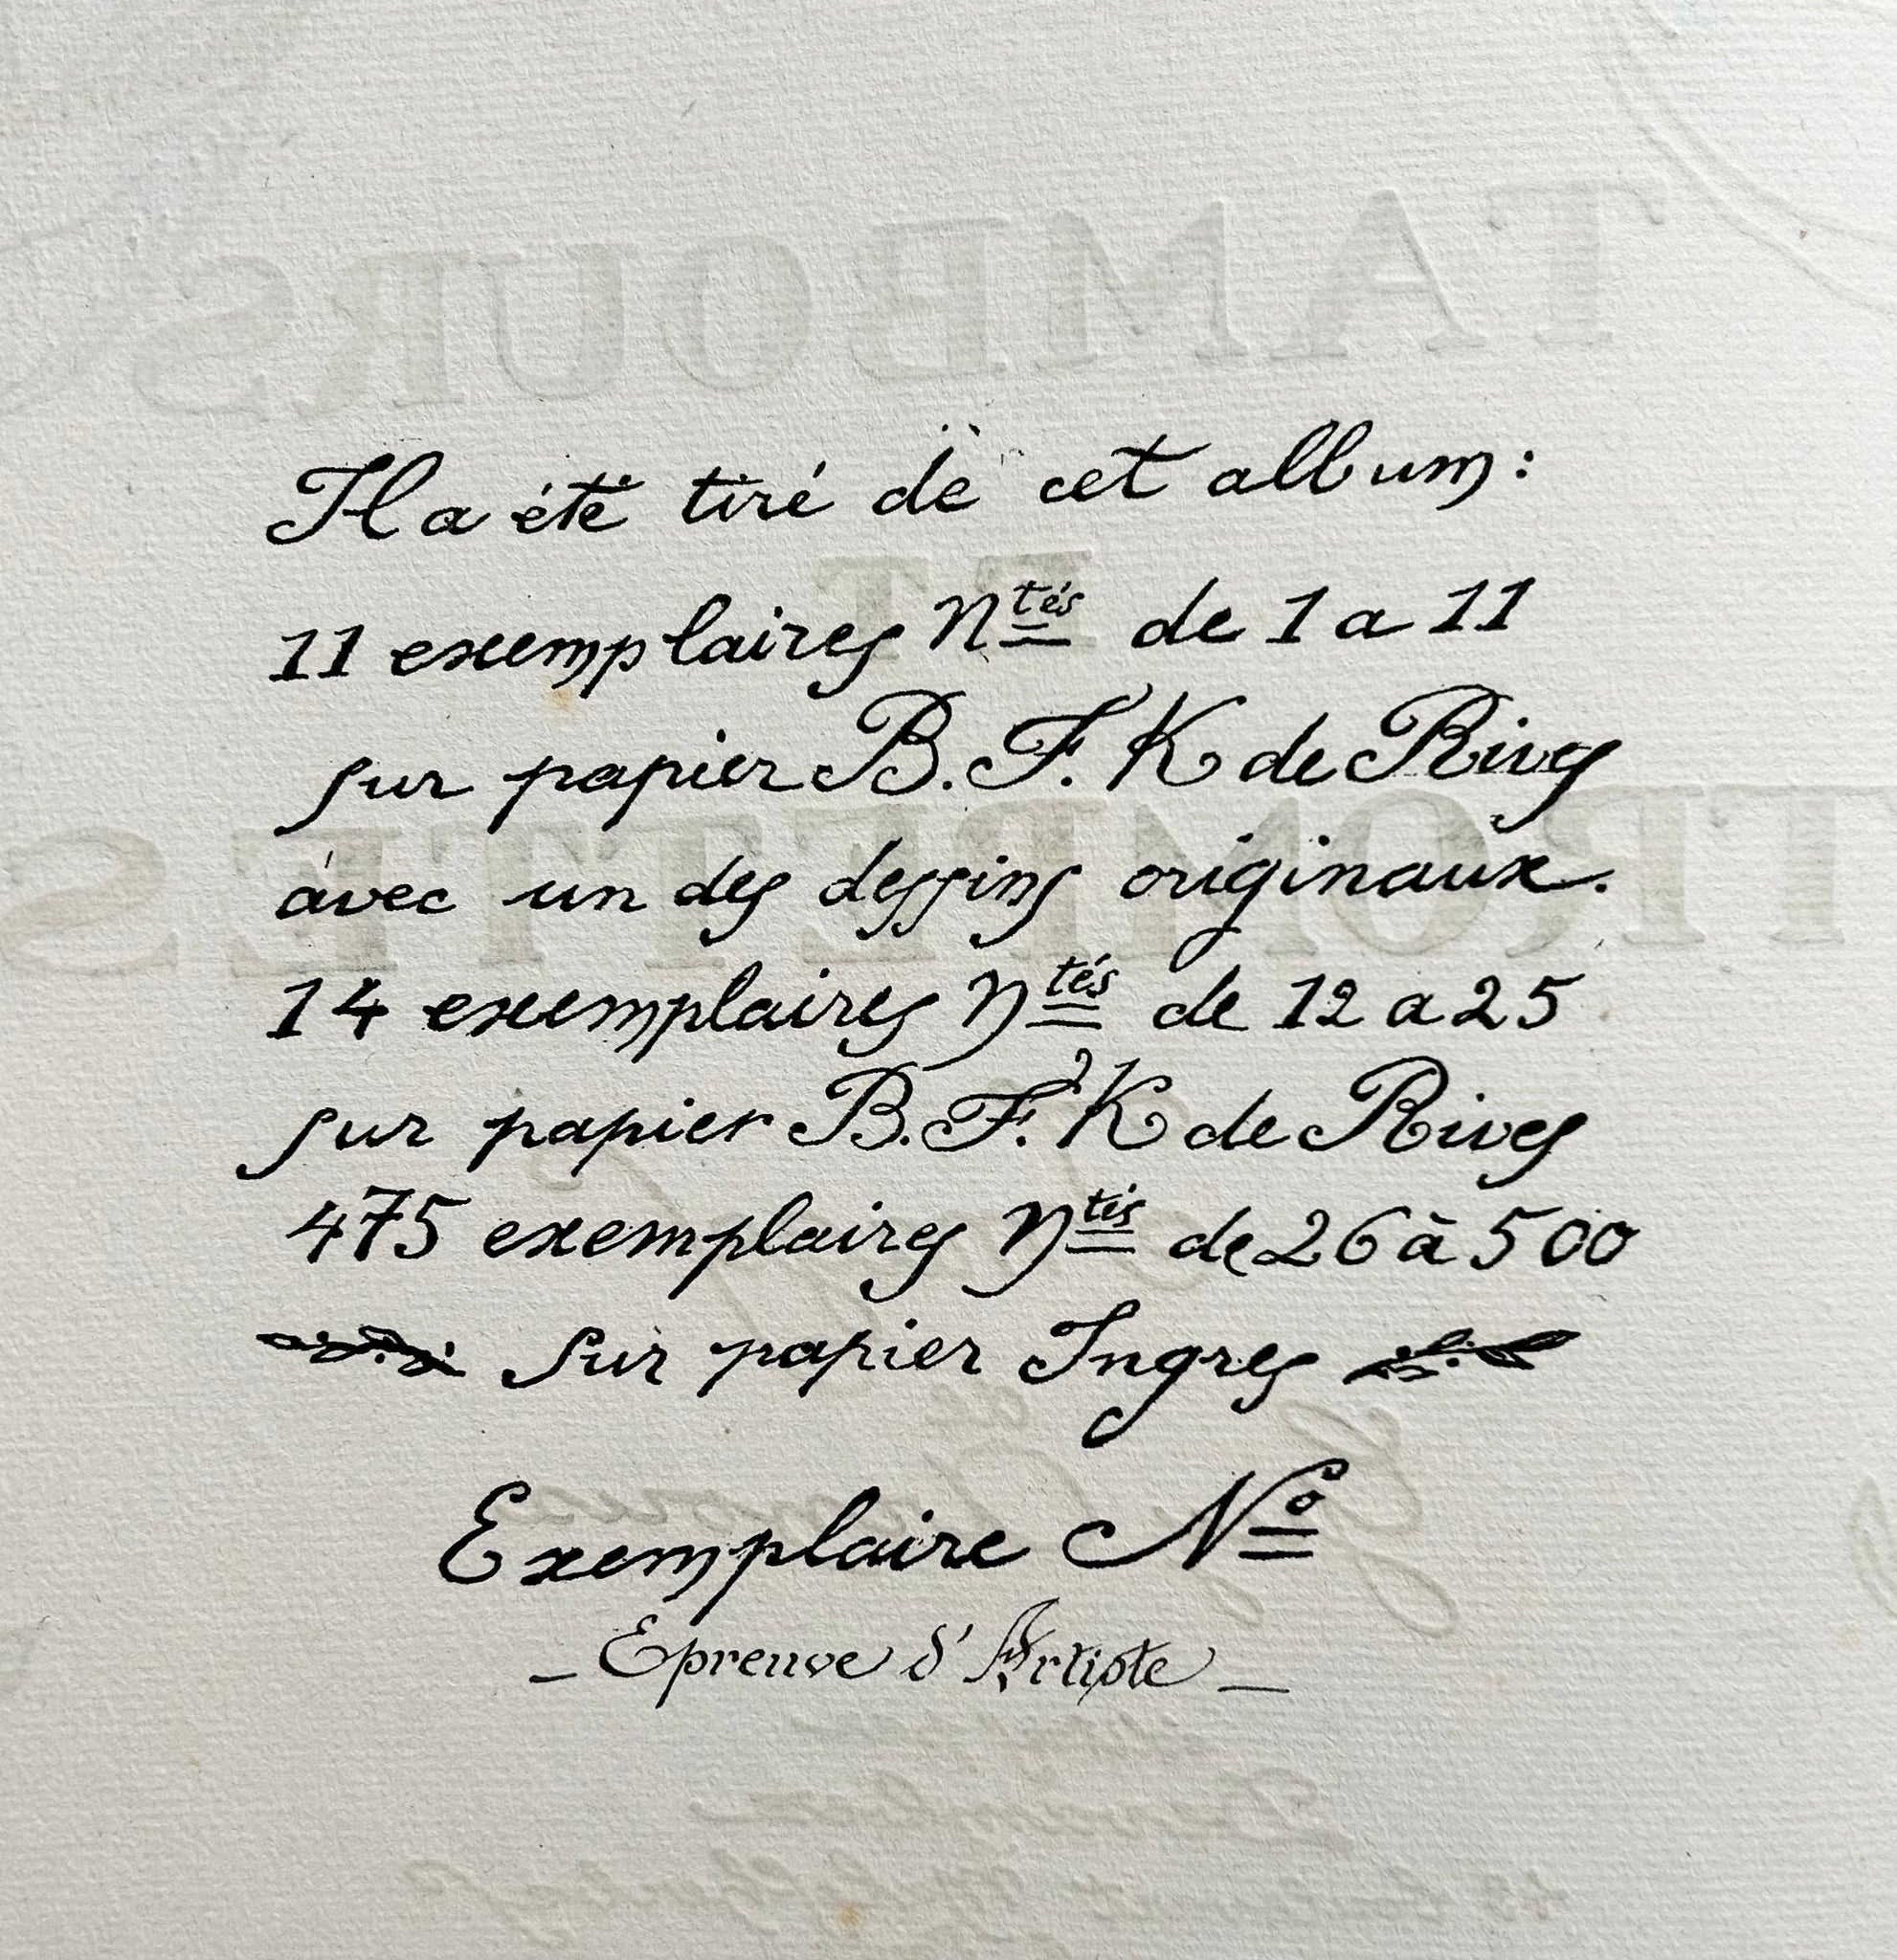 Il a été tiré de cet album:
11 exemplaires Ntés de 1 a 11
sur papier B.F.K de Rives
avec un des dessins originaux.
14 exemplaires Ntés de 12 a 25
sur papier B.F.K de Rives
475 exemplaires Ntés de 26 à 500
sur papier Ingres
Exemplaire No
- Epreuve d'Artiste -
TAMBOURS
ET
TROMPETTES